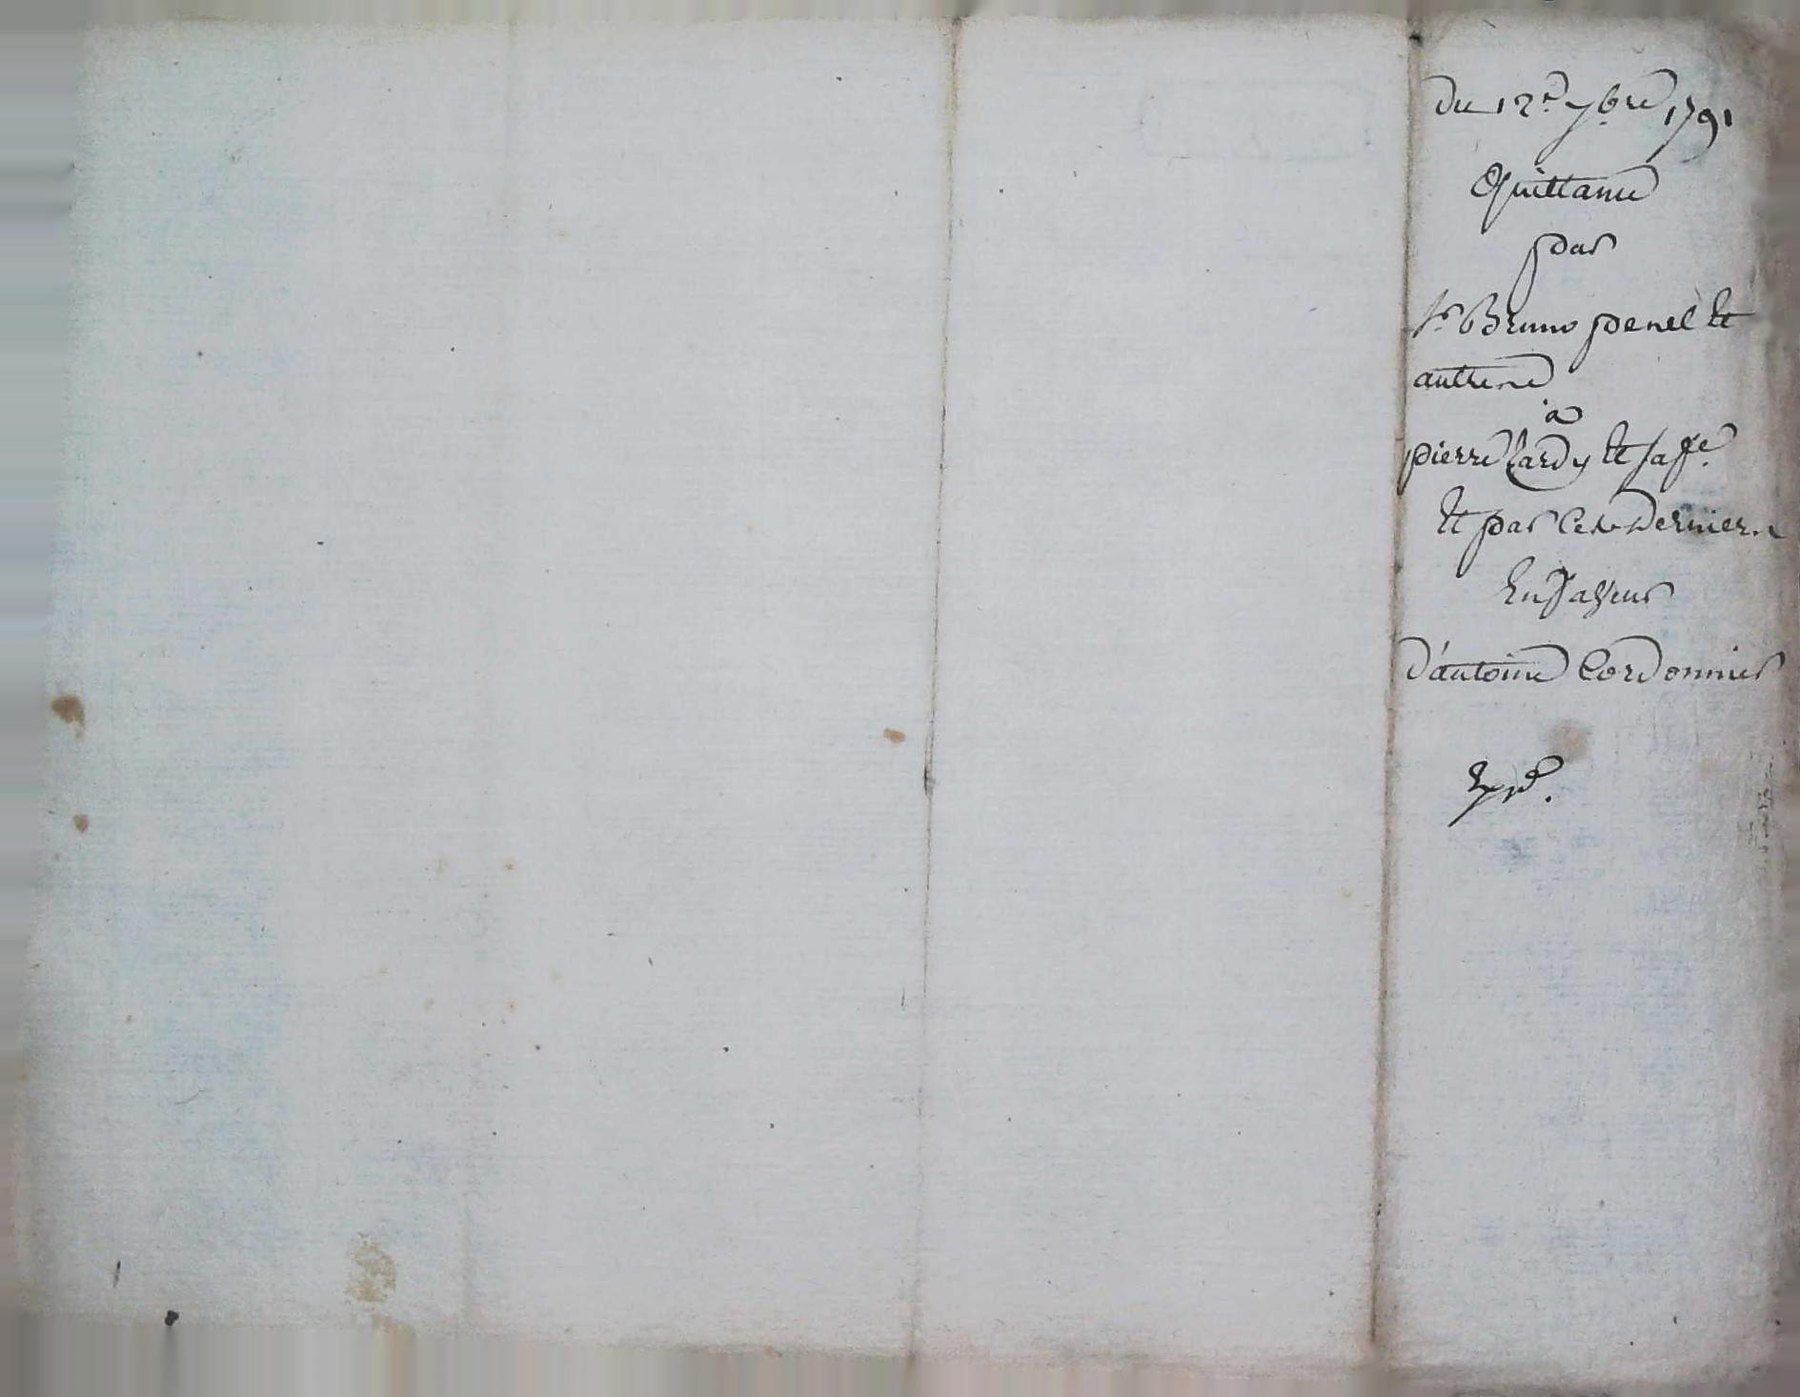 du 12e. 7bre 1791
Quittance
par
Sr. Bruno penel Et
autres
à
pierre Lardy Et sa fe.
Et par Ces derniers
En faveur
d'antoine Cordonnier
Expd.